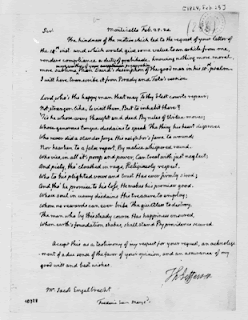 [1824, Feb. 25]
Sir Monticello Feb. 25. 24
The kindness of the motive which led to the request of your letter of
the 18th inst. and which would give some value to an article from me,
renders compliance a duty of gratitude. knowing nothing more moral,
more sublime, more worthy of your preservation than David's description of the good man in his 15th psalm
I will here transcribe it from Brady and Tate's version
Lord, who's the happy man that may to thy blest courts repair;
Not stranger-like, to visit them, But to inhabit there?
'Tis he whose every thought and deed By rules of virtue moves;
Whose generous tongue disdains to speak The thing his heart disproves
Who never did a slander forge His neighbor's fame to wound
Nor hearken to a false report, By malice whispered round.
Who vice, in all it's pomp and power, Can treat with just neglect;
And piety, tho' clothed in rags, Religiously respect.
Who to his plighted vows and trust Has ever firmly stood;
And tho' he promise to his loss, He makes his promise good.
Whose soul in usury disdains His treasure to employ;
Whom no rewards can ever bribe The guiltless to destroy.
The man who by this steady course Has happiness ensured,
When earth's foundation shakes, shall stand By providence secured.
Accept this as a testimony of my respect for your request, an acknolege-
ment of a due sense of the favor of your opinion, and an assurance of my
good will and best wishes.
Th: Jefferson
Mr. Jacob Engelbrecht